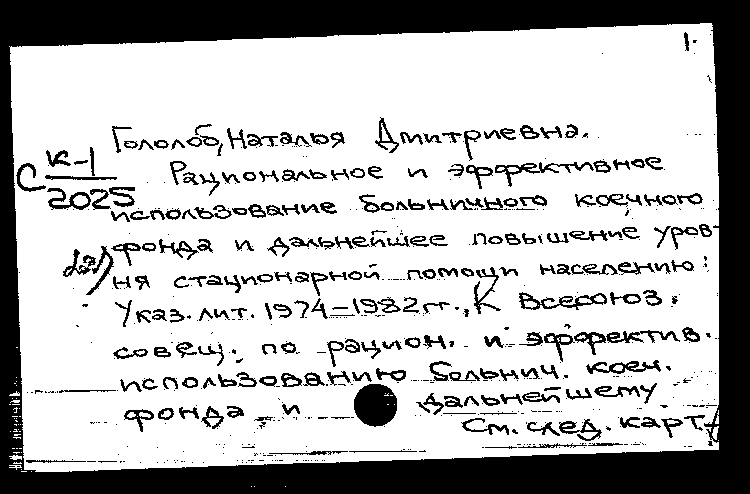 1.
Гололоб, Наталья Дмитриевна.
С К-1
2025
Рациональное и эффективное
использование больничного коечного
фонда и дальнейшее повышение уров-
ня стационарной помощи населению:
Указ. лит. 1974-1982 гг., К Всесоюз.
совещ. по рацион. и эффектив.
использованию больнич. коеч.
фонда и дальнейшему
См. след. карт.